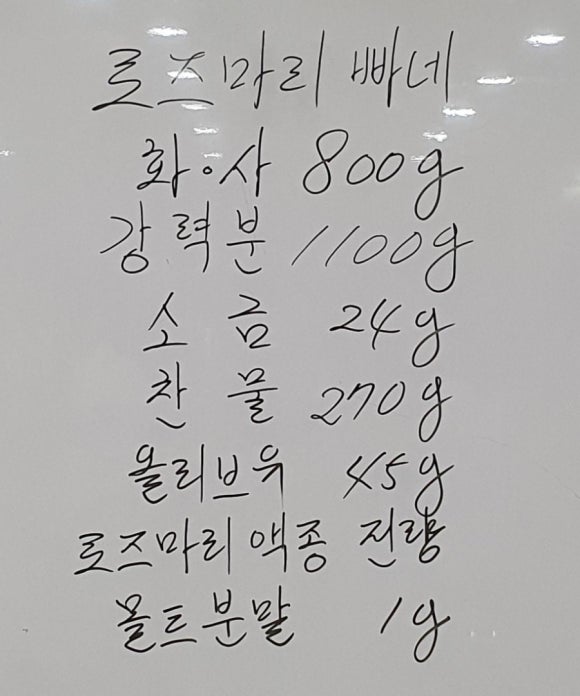 로즈마리 빠네
화·사 800g
강력분 1100g
소금 24g
찬물 270g
올리브유 45g
로즈마리 액종 전량
몰트분말 1g